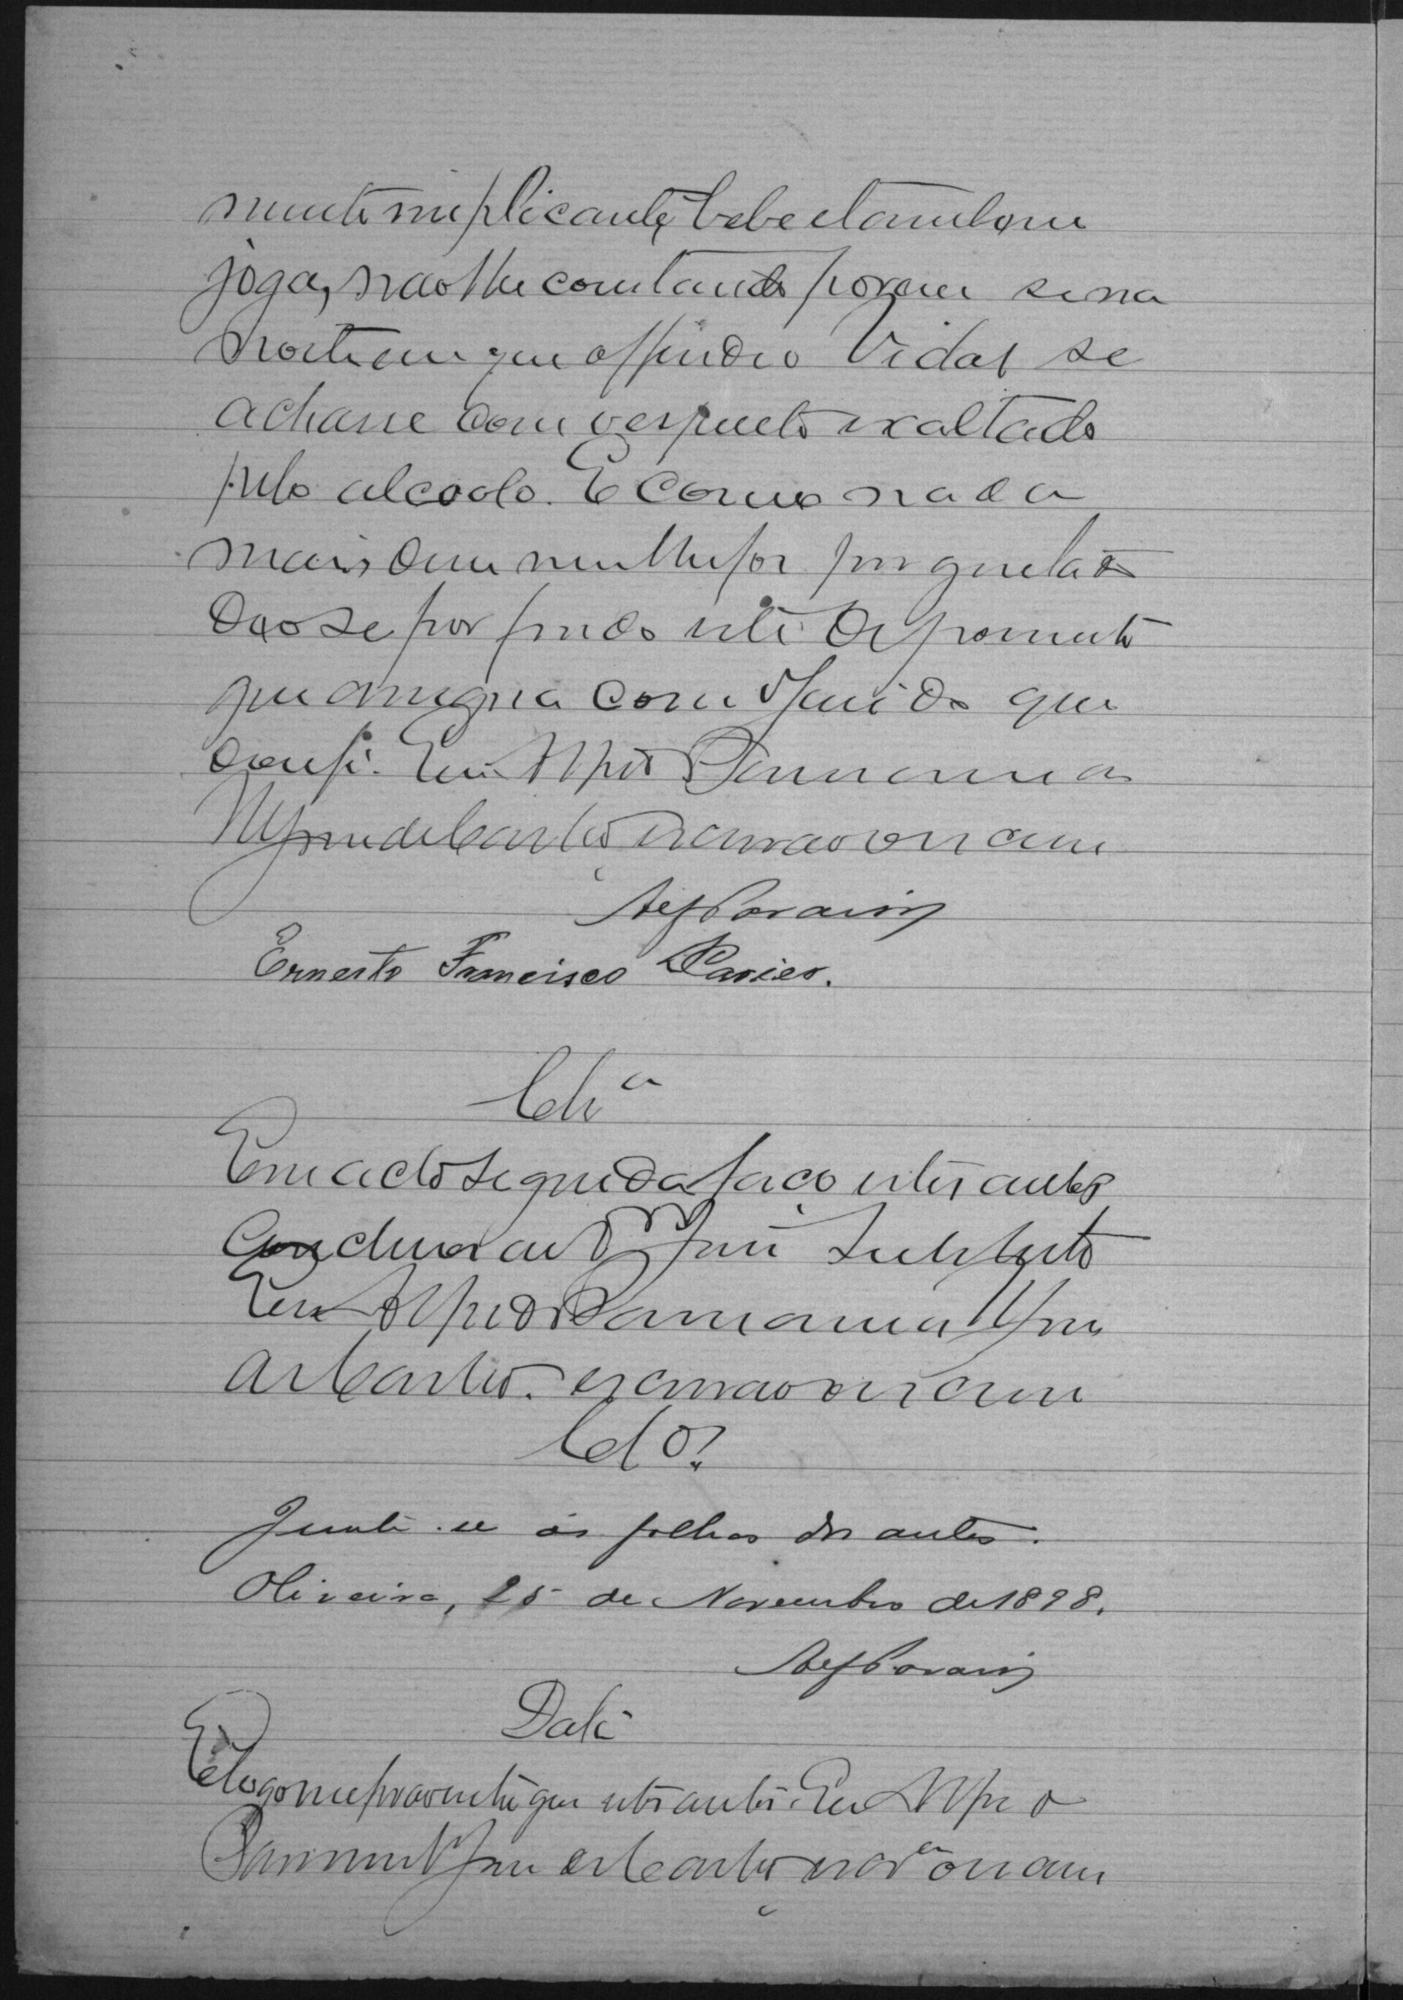 mente implicante, bebe e tambem
joga, não lhe constando porem se na
noite em que offendeo Vidal se
achasse com o espirito exaltado
pelo alcool. E como nada
mais dem nem lhe foi perguntado
deose por findo este depoimento
que assigna com o Juiz do que
dou fé. Eu Alfredo
de Castro, escrivão o escrevi
Ernesto Francisco Xavier.
Cls.ª
Em acto seguida faço estes autos
conclusos ao Dr Juiz Substituto
Eu Alfredo
de Castro. escrivão o escrevi
Cls.
Junte-se ás folhas dos autos.
Oliveira, 25 de Novembro de 1898.
Data
E logo me forão entregues estes autos. Eu Alfredo
de Castro escrivão o escrevi